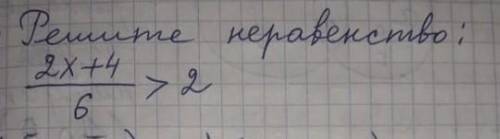 Решите неравенство:
2x+4
6 > 2